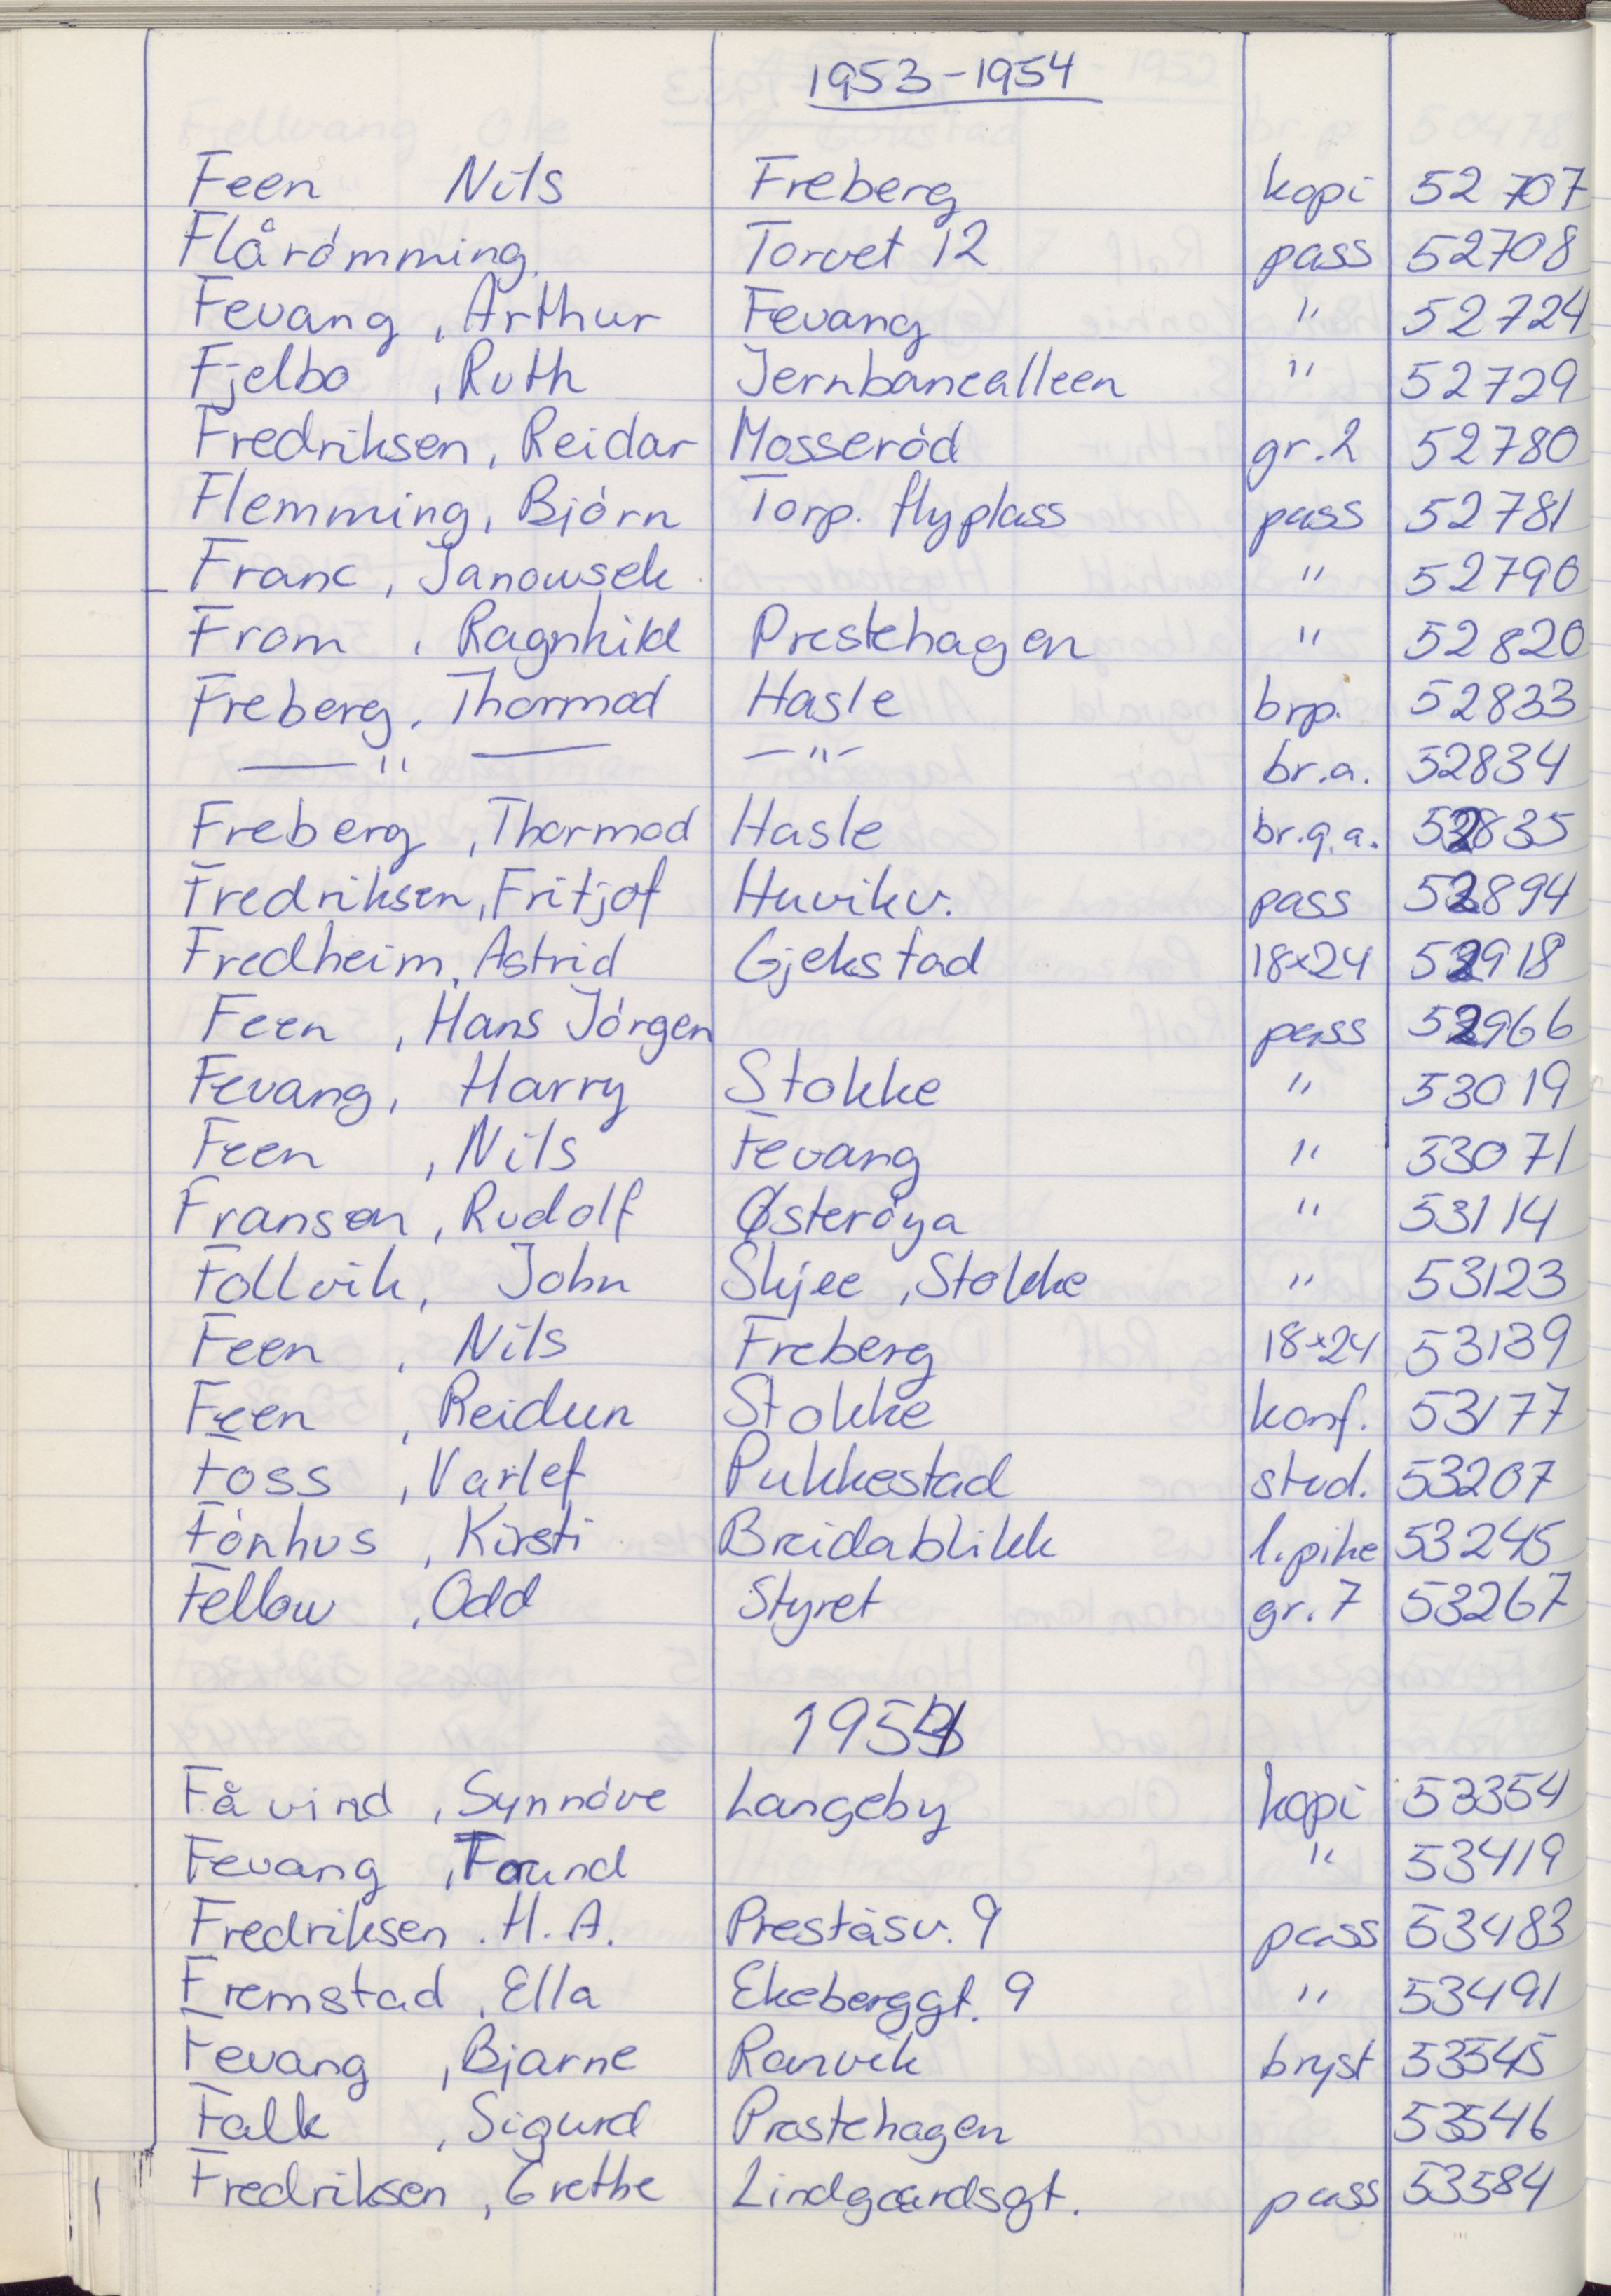 1953-1954
Feen Nils Freberg kopi 52707
Flårömming Torvet 12 pass 52708
Fevang, Arthur Fevang " 52724
Fjelbo, Ruth Jernbanealleen " 52729
Fredriksen, Reidar Mosseröd gr.2 52780
Flemming, Björn Torp. flyplass pass 52781
Franc, Janowsek " 52790
From, Ragnhild Prestehagen " 52820
Freberg, Thormod Hasle brp. 52833
— " — — " — br.a. 52834
Freberg, Thormod Hasle br.g.a. 52835
Fredriksen, Fritjof Huvikv. pass 52894
Fredheim, Astrid Gjekstad 18x24 52918
Feen, Hans Jörgen pass 52966
Fevang, Harry Stokke " 53019
Feen, Nils Fevang " 53071
Franson, Rudolf Østeröya " 53114
Follvik, John Skjee, Stokke " 53123
Feen, Nils Freberg 18x24 53139
Feen, Reidun Stokke konf. 53177
Foss, Varlef Pukkestad stud. 53207
Fönhus, Kirsti Breidablikk l.pike 53245
Fellow, Odd Styret gr.7 53267
1954
Fåvind, Synnöve Langeby kopi 53354
Fevang, " 53419
Fredriksen. H.A. Preståsv. 9 pass 53483
Fremstad, Ella Ekeberggt. 9 " 53491
Fevang, Bjarne Ranvik bryst 53545
Falk, Sigurd Prestehagen 53546
Fredriksen, Grethe Lindgaardsgt. pass 53584